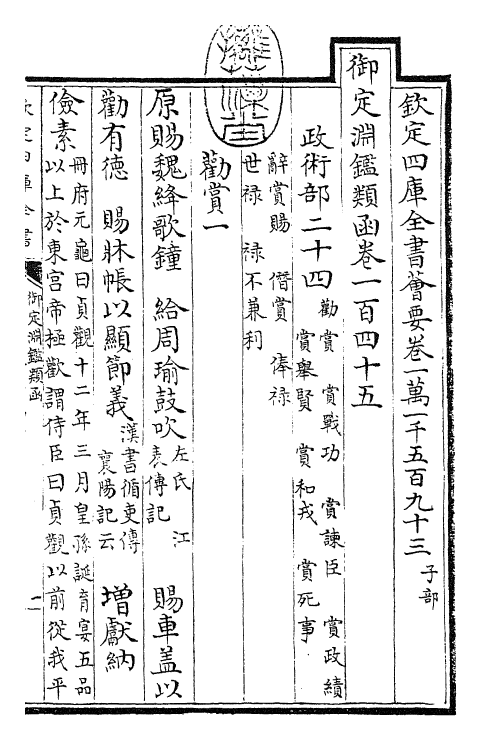 欽定四庫全書薈要卷一萬一千五百九十三 子部
御定淵鑑類函卷一百四十五
政術部二十四 勸賞 賞戰功 賞諫臣 賞政績
賞舉賢 賞和戎 賞死事
辭賞賜 僭賞 俸祿
世祿 祿不兼利
勸賞一
原賜魏絳歌鐘 給周瑜鼓吹 左氏 江
表傳記 賜車蓋以
勸有德 賜牀帳以顯節義 漢書循吏傳
襄陽記云 增獻納
儉素 冊府元龜曰貞觀十二年三月皇孫誕育宴五品
以上於東宮帝極歡謂侍臣曰貞觀以前從我平
御定淵鑑類函